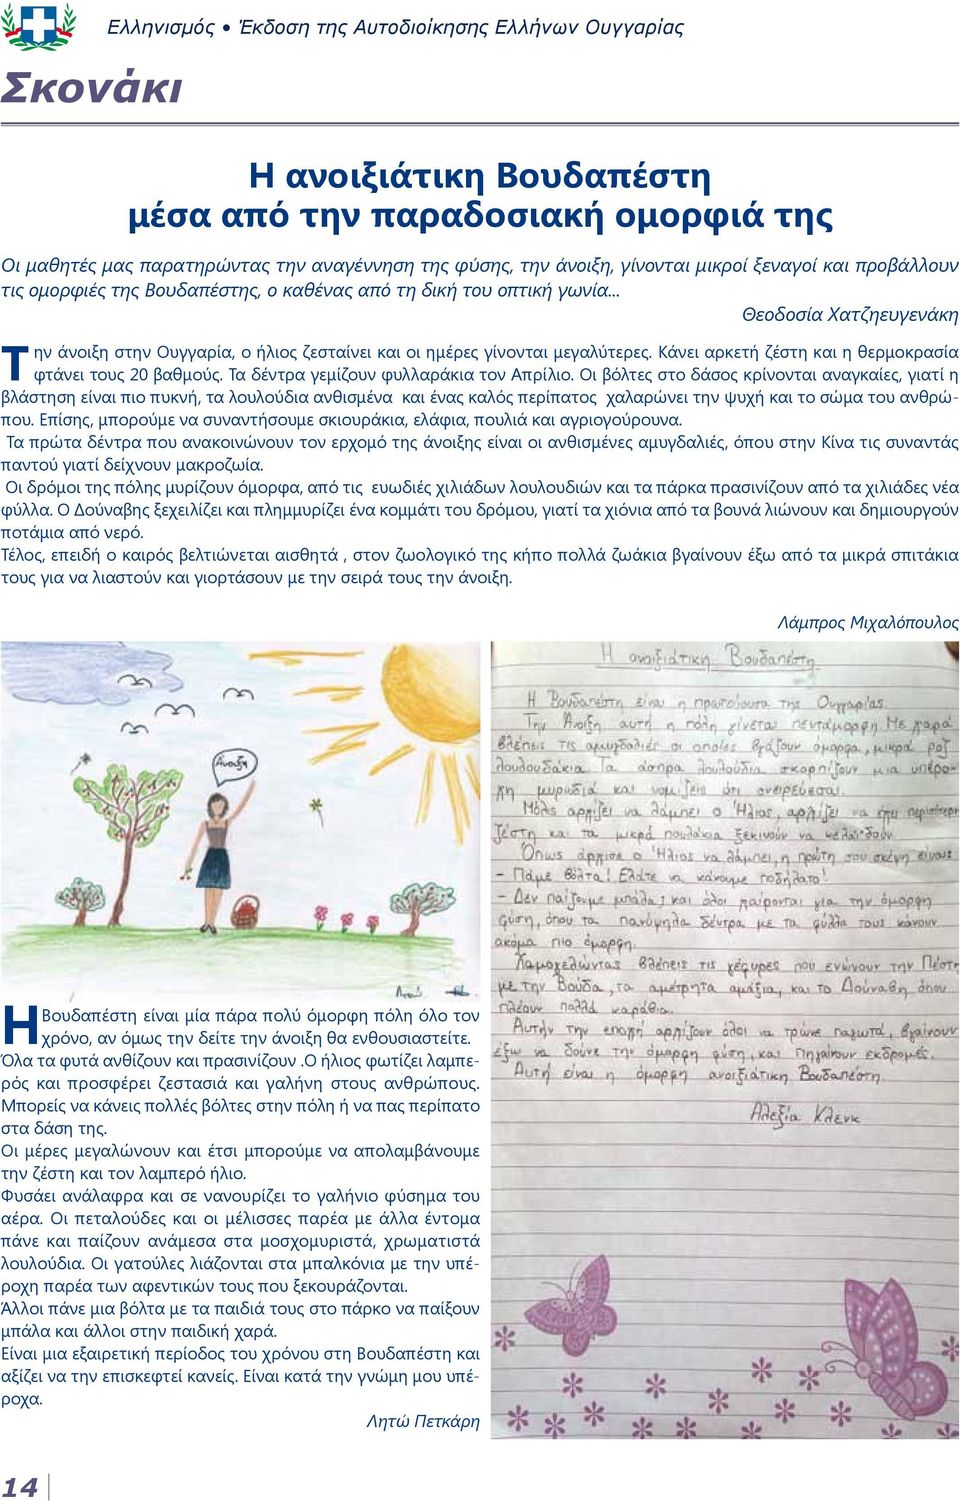 Ελληνισμός • Έκδοση της Αυτοδιοίκησης Ελλήνων Ουγγαρίας
Σκονάκι
Η ανοιξιάτικη Βουδαπέστη
μέσα από την παραδοσιακή ομορφιά της
Οι μαθητές μας παρατηρώντας την αναγέννηση της φύσης, την άνοιξη, γίνονται μικροί ξεναγοί και προβάλλουν
τις ομορφιές της Βουδαπέστης, ο καθένας από τη δική του οπτική γωνία...
Θεοδοσία Χατζηευγενάκη
Την άνοιξη στην Ουγγαρία, ο ήλιος ζεσταίνει και οι ημέρες γίνονται μεγαλύτερες. Κάνει αρκετή ζέστη και η θερμοκρασία
φτάνει τους 20 βαθμούς. Τα δέντρα γεμίζουν φυλλαράκια τον Απρίλιο. Οι βόλτες στο δάσος κρίνονται αναγκαίες, γιατί η
βλάστηση είναι πιο πυκνή, τα λουλούδια ανθισμένα και ένας καλός περίπατος χαλαρώνει την ψυχή και το σώμα του ανθρώ-
που. Επίσης, μπορούμε να συναντήσουμε σκιουράκια, ελάφια, πουλιά και αγριογούρουνα.
Τα πρώτα δέντρα που ανακοινώνουν τον ερχομό της άνοιξης είναι οι ανθισμένες αμυγδαλιές, όπου στην Κίνα τις συναντάς
παντού γιατί δείχνουν μακροζωία.
Οι δρόμοι της πόλης μυρίζουν όμορφα, από τις ευωδιές χιλιάδων λουλουδιών και τα πάρκα πρασινίζουν από τα χιλιάδες νέα
φύλλα. Ο Δούναβης ξεχειλίζει και πλημμυρίζει ένα κομμάτι του δρόμου, γιατί τα χιόνια από τα βουνά λιώνουν και δημιουργούν
ποτάμια από νερό.
Τέλος, επειδή ο καιρός βελτιώνεται αισθητά , στον ζωολογικό της κήπο πολλά ζωάκια βγαίνουν έξω από τα μικρά σπιτάκια
τους για να λιαστούν και γιορτάσουν με την σειρά τους την άνοιξη.
Λάμπρος Μιχαλόπουλος
Άνοιξη
Η Βουδαπέστη είναι μία πάρα πολύ όμορφη πόλη όλο τον
χρόνο, αν όμως την δείτε την άνοιξη θα ενθουσιαστείτε.
Όλα τα φυτά ανθίζουν και πρασινίζουν .Ο ήλιος φωτίζει λαμπε-
ρός και προσφέρει ζεστασιά και γαλήνη στους ανθρώπους.
Μπορείς να κάνεις πολλές βόλτες στην πόλη ή να πας περίπατο
στα δάση της.
Οι μέρες μεγαλώνουν και έτσι μπορούμε να απολαμβάνουμε
την ζέστη και τον λαμπερό ήλιο.
Φυσάει ανάλαφρα και σε νανουρίζει το γαλήνιο φύσημα του
αέρα. Οι πεταλούδες και οι μέλισσες παρέα με άλλα έντομα
πάνε και παίζουν ανάμεσα στα μοσχομυριστά, χρωματιστά
λουλούδια. Οι γατούλες λιάζονται στα μπαλκόνια με την υπέ-
ροχη παρέα των αφεντικών τους που ξεκουράζονται.
Άλλοι πάνε μια βόλτα με τα παιδιά τους στο πάρκο να παίξουν
μπάλα και άλλοι στην παιδική χαρά.
Είναι μια εξαιρετική περίοδος του χρόνου στη Βουδαπέστη και
αξίζει να την επισκεφτεί κανείς. Είναι κατά την γνώμη μου υπέ-
ροχα.
Λητώ Πετκάρη
Η ανοιξιάτικη Βουδαπέστη
Η Βουδαπέστη είναι η πρωτεύουσα της Ουγγαρίας.
Την Άνοιξη αυτή η πόλη γίνεται πεντάμορφη. Με χαρά
βλέπεις τις αμυγδαλιές οι οποίες βγάζουν όμορφα, μικρά ροζ
λουλουδάκια. Τα άσπρα λουλούδια σκορπίζουν μια υπέρο-
χη μυρωδιά και νομίζεις ότι ονειρεύεσαι.
Μόλις αρχίζει να λάμπει ο Ήλιος, αρχίζει να έχει περισσότερη
ζέστη και τα μικρά πουλάκια ξεκινούν να κελαϊδούν.
Όπως άρχισε ο Ήλιος να λάμπει, η πρώτη σου σκέψη είναι:
- Πάμε βόλτα! Ελάτε να κάνουμε ποδήλατο!
- Δεν παίζουμε μπάλα; και όλοι χαίρονται για την όμορφη
φύση, όπου τα πανύψηλα δέντρα με τα φύλλα τους κάνουν
ακόμα πιο όμορφη.
Χαμογελώντας βλέπεις τις γέφυρες που ενώνουν την Πέστη
με την Βούδα, τα αμέτρητα αμάξια, και το Δούναβη όπου
πλέουν πολλά καράβια.
Αυτήν την εποχή αρχίζουν όλοι να τρώνε παγωτά, βγαίνουν
έξω να δουν τη όμορφη φύση, και πηγαίνουν εκδρομές.
Αυτή είναι η όμορφη ανοιξιάτικη Βουδαπέστη.
Αλεξία Κλενκ
14